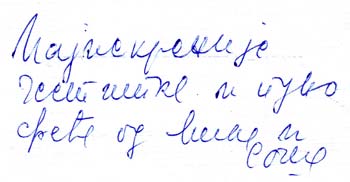 Најискреније
честитке и пуно
среће од Миће и
Соње